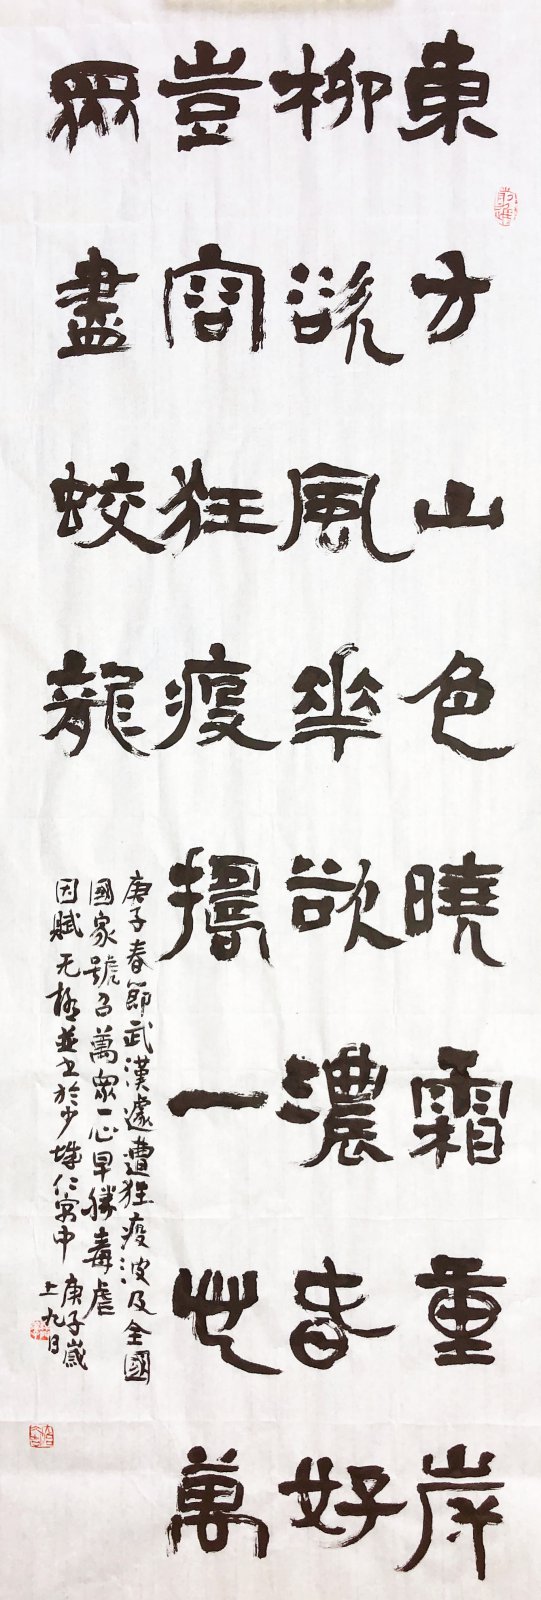 東方山色曉霜重岸
柳欲風華欲濃春好
豈容狂疫一萬
眾盡蛟龍
庚子春節武漢遽遭狂疫波及全國
國家號召萬眾一心早勝毒虐
因賦无極並書於少城仁寓中
庚子歲
上九日